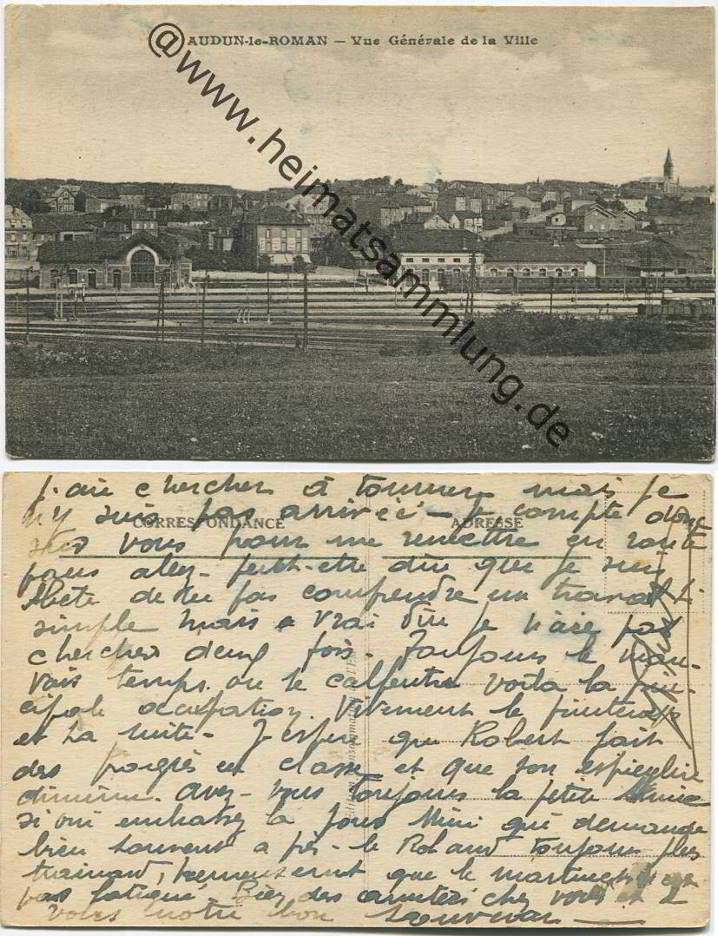 AUDUN-le-ROMAN — Vue Générale de la Ville
@www.heimatsammlung.de
j'ai chercher à tourner mais je
n'y suis pas arrivée - Je compte donc
CORRESPONDANCE ADRESSE
vous pour me remettre en route
vous allez - peut-être dire que je suis
bête de ne pas comprendre un travail si
simple mais a vrai dire je n'aie pas
chercher deux fois - Toujours le mau-
vais temps. ou le calfeutre voila la prin-
cipale occupation. Vivement le printemps
et la suite - J'espère que Robert fait
des progrès en classe et que son espièglerie
diminue. avez-vous toujours la petite
si oui embrassez la pour Mimi qui demande
bien souvent a près - le Roland toujours plus
trainard, heureusement que le martinet n'est
pas fatigué - Bien des caresses chez vous et a
vous notre bon souvenir